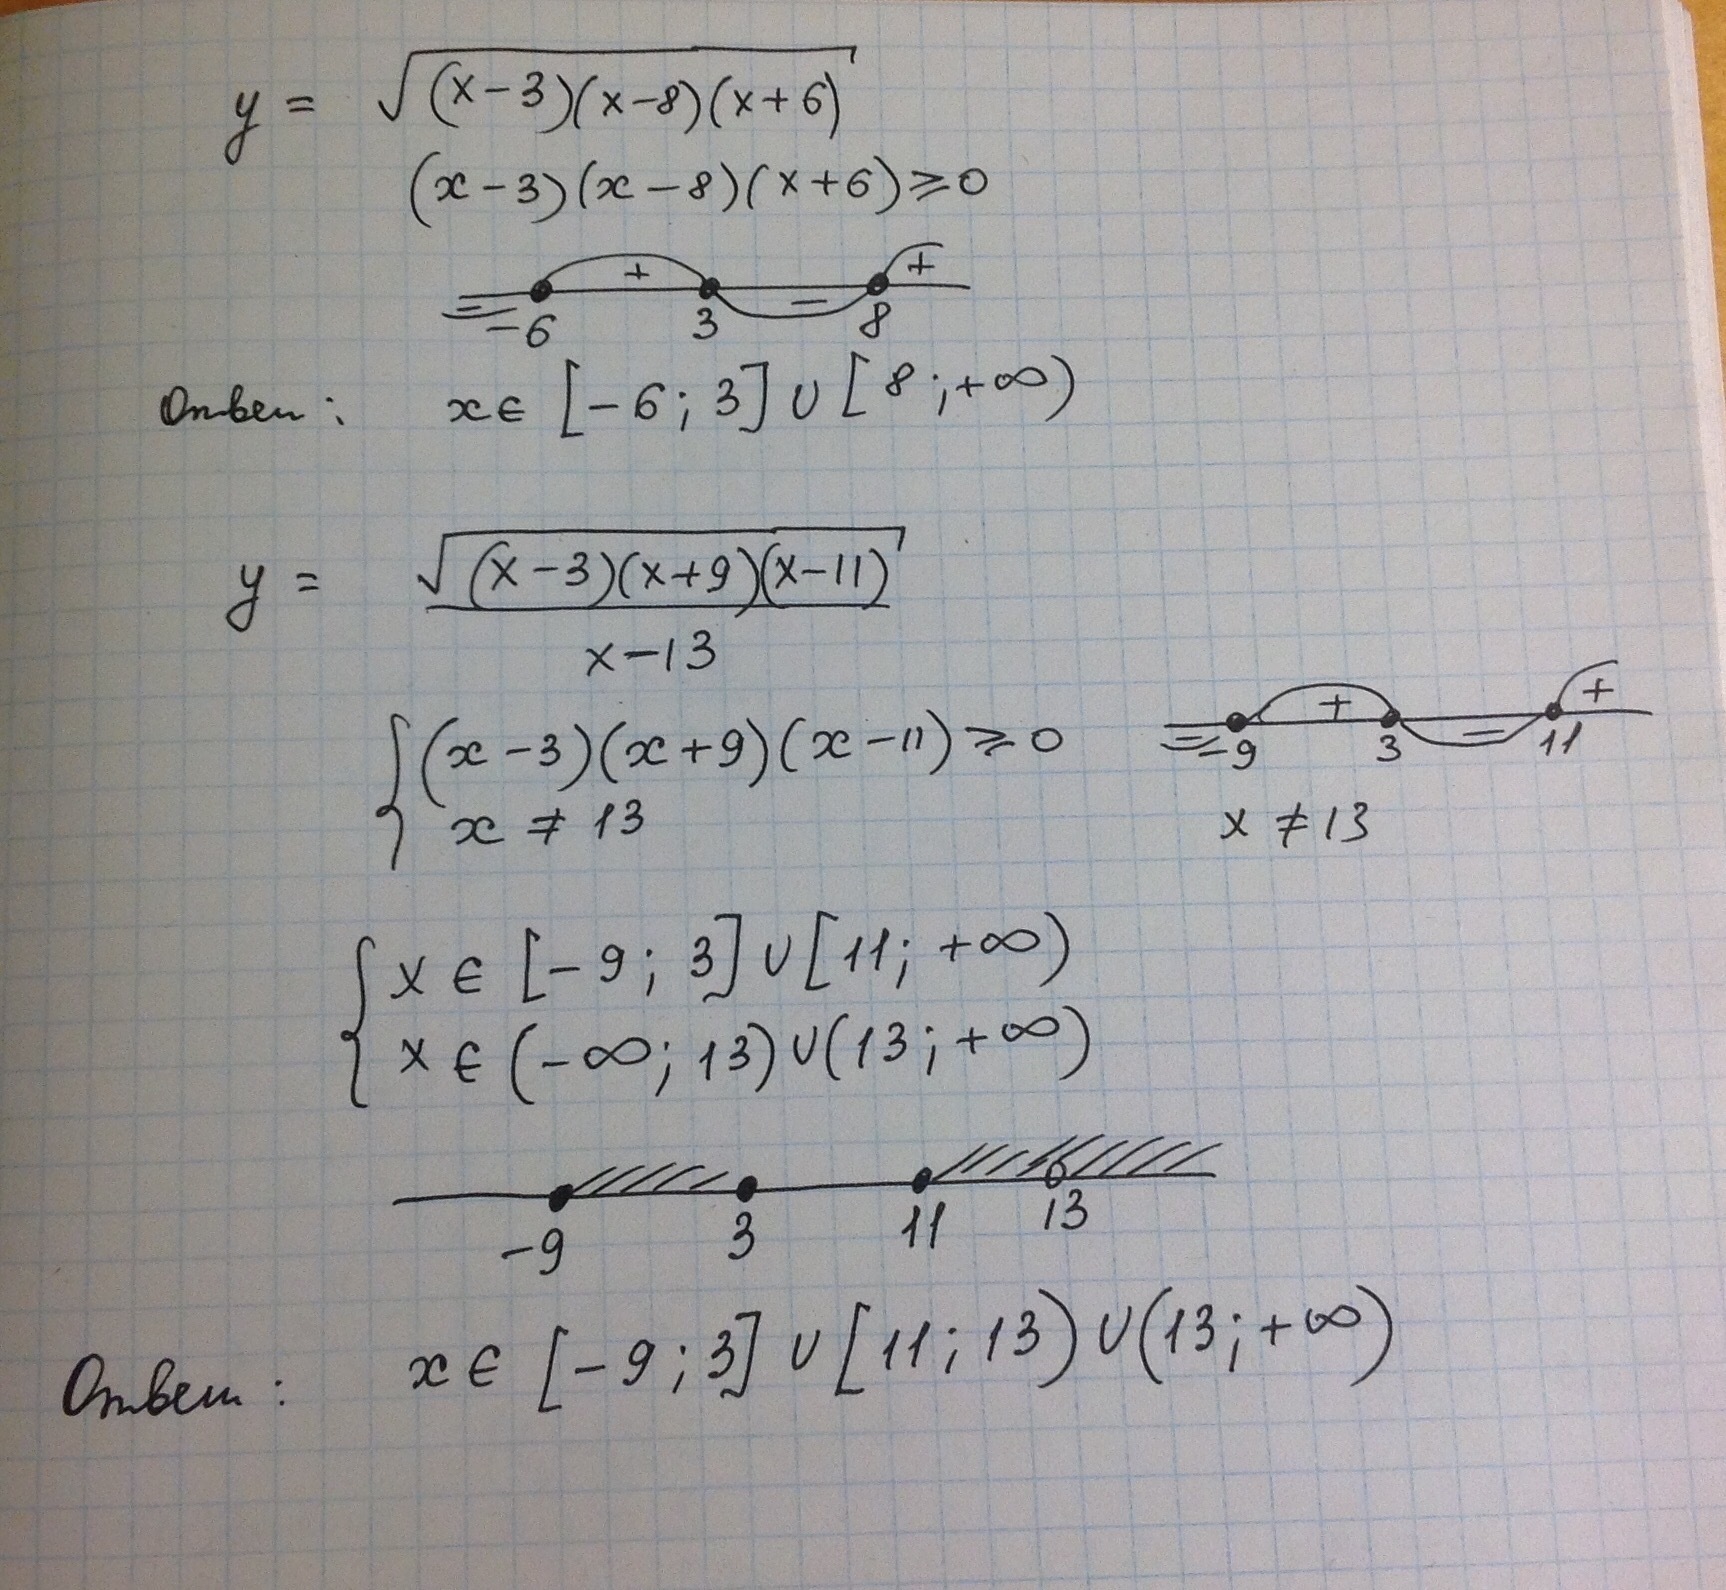 y = √(x-3)(x-8)(x+6)
(x-3)(x-8)(x+6)≥0
- + - +
-6 3 8
Ответ: x∈ [-6; 3] ∪ [8; +∞)
y = √(x-3)(x+9)(x-11)
x-13
{ (x-3)(x+9)(x-11)≥0
x ≠ 13
- + - +
-9 3 11
x ≠ 13
{ x ∈ [-9; 3] ∪ [11; +∞)
x ∈ (-∞; 13) ∪ (13; +∞)
-9 3 11 13
Ответ: x∈ [-9; 3] ∪ [11; 13) ∪ (13; +∞)